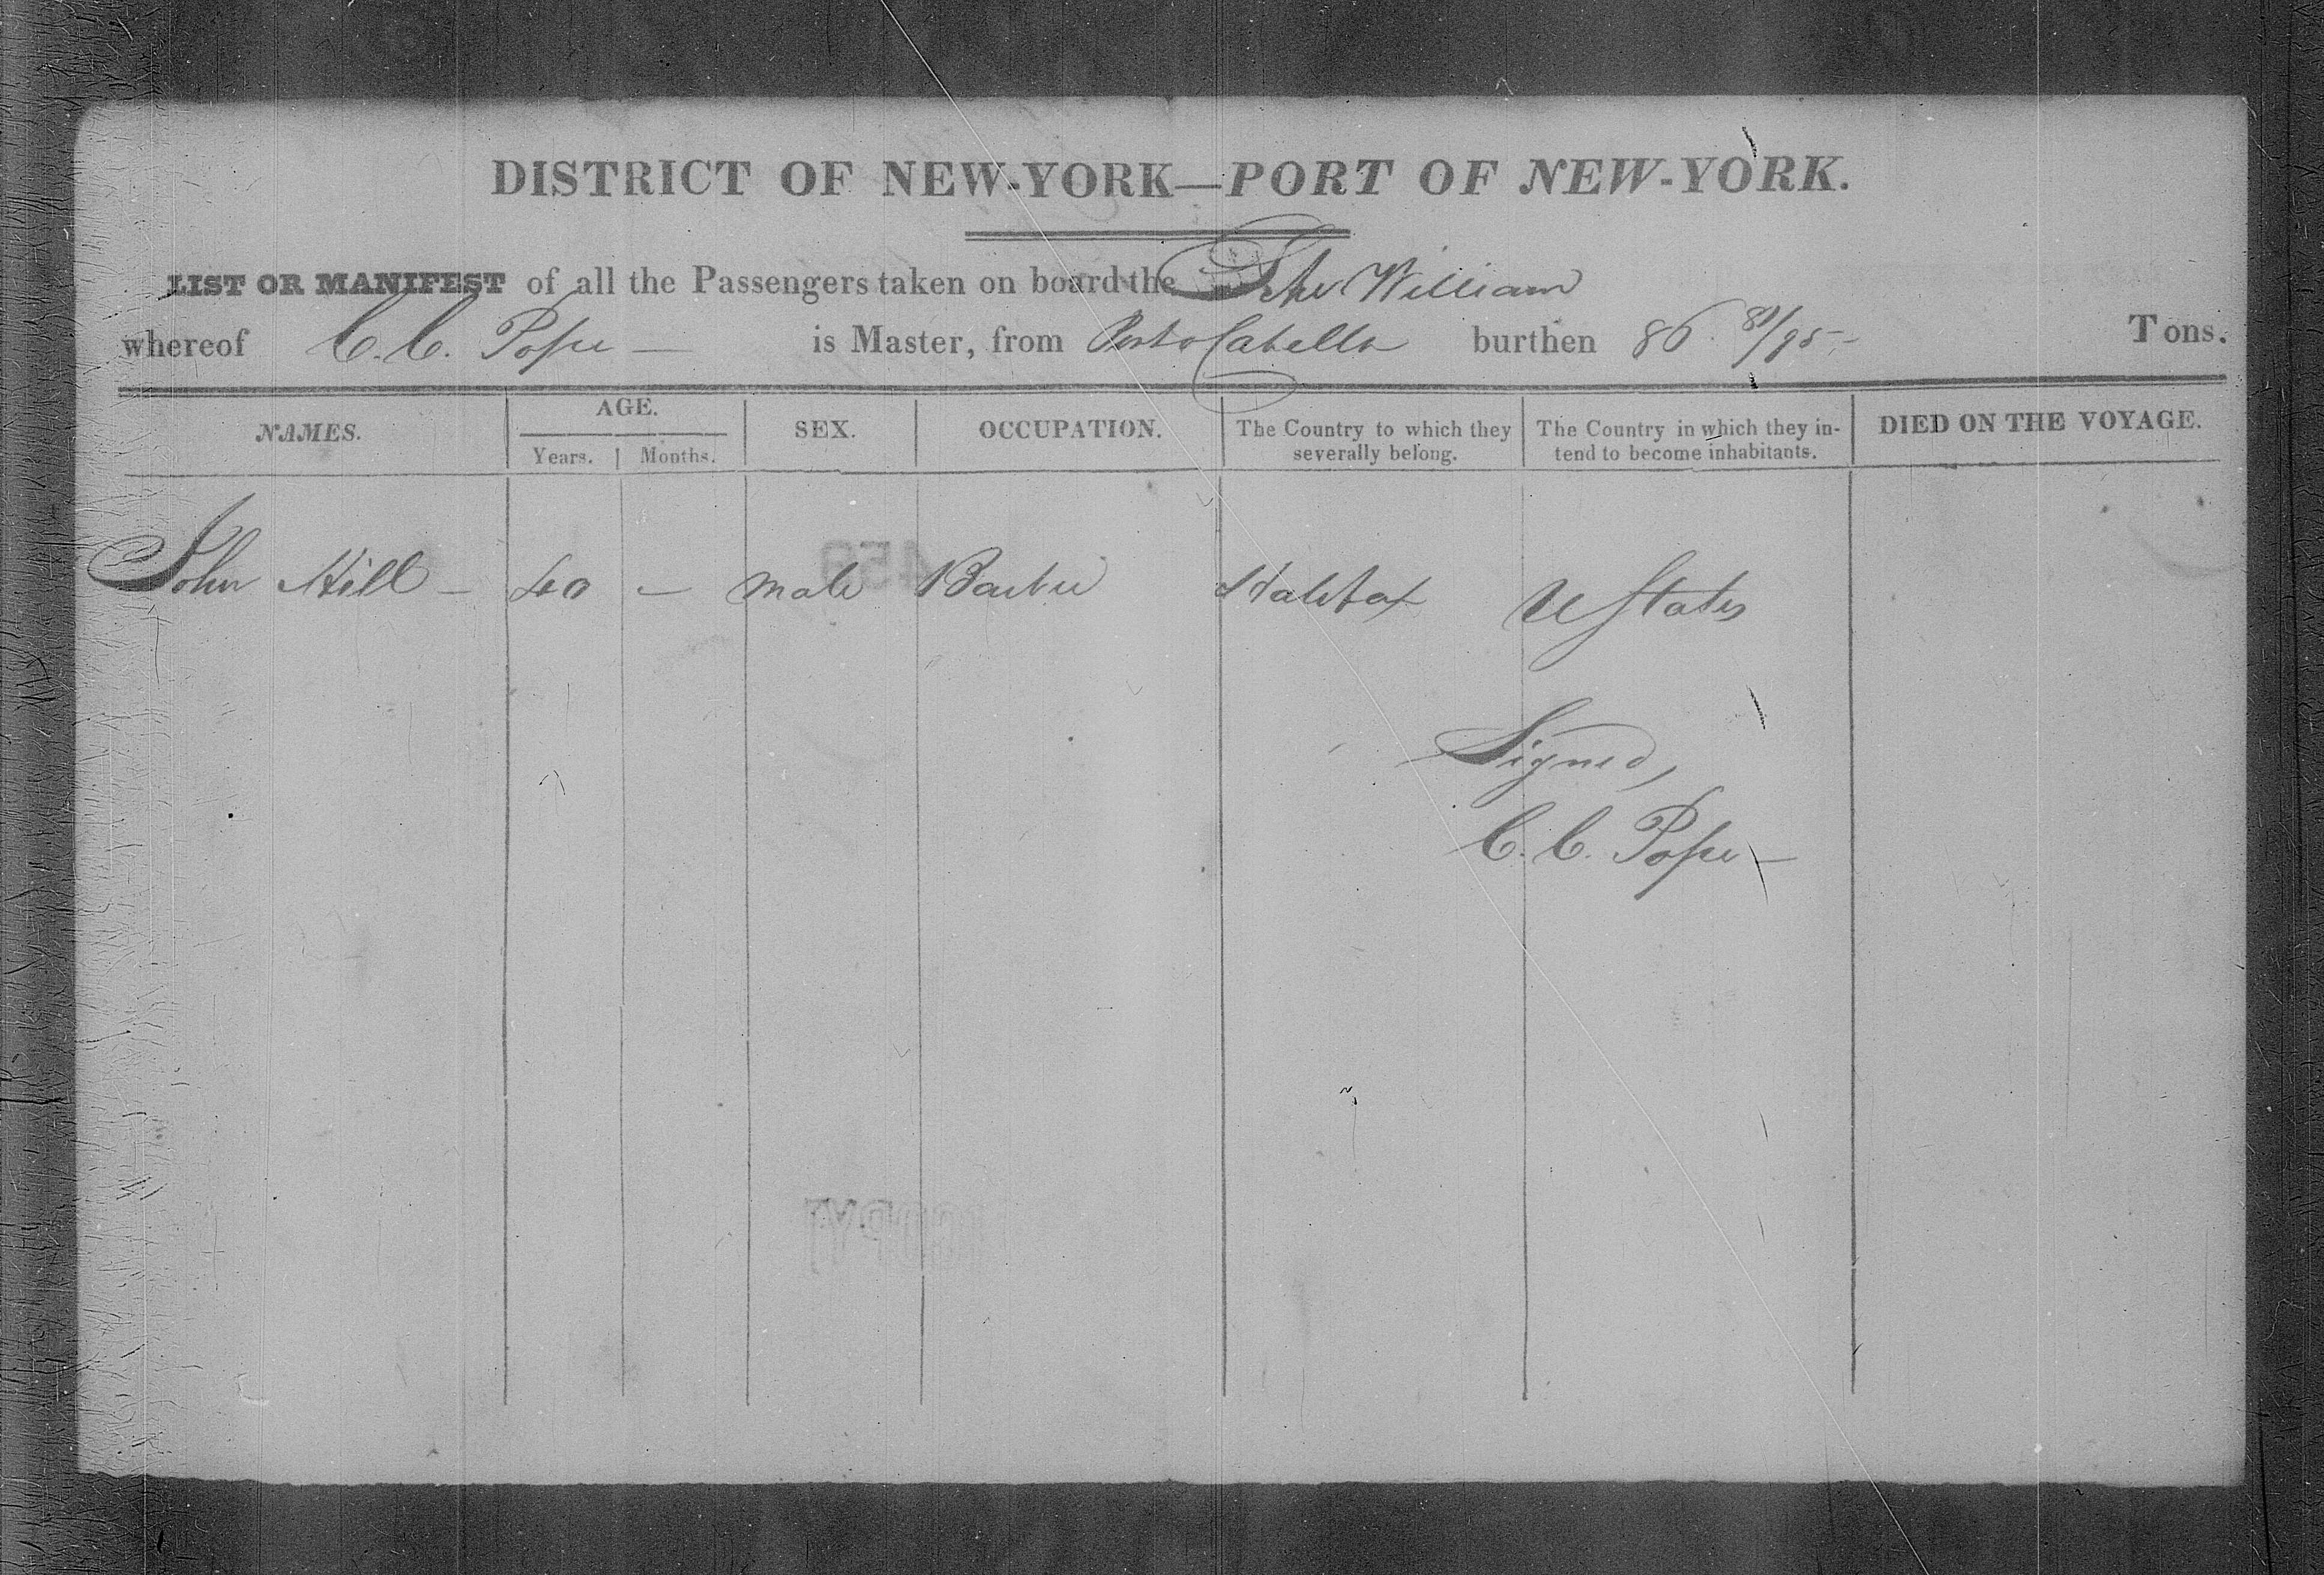 DISTRICT OF NEW-YORK—PORT OF NEW-YORK.
LIST OR MANIFEST of all the Passengers taken on board the Schr William
whereof C. C. Pope — is Master, from Porto Cabello burthen 86 81/95 — Tons.
NAMES. AGE. SEX. OCCUPATION. The Country to which they severally belong. The Country in which they in- DIED ON THE VOYAGE.
Years. Months. tend to become inhabitants.
John Hill — 40 — male Barber Halifax U States
Signed,
C. C. Pope —
459
[COPY]